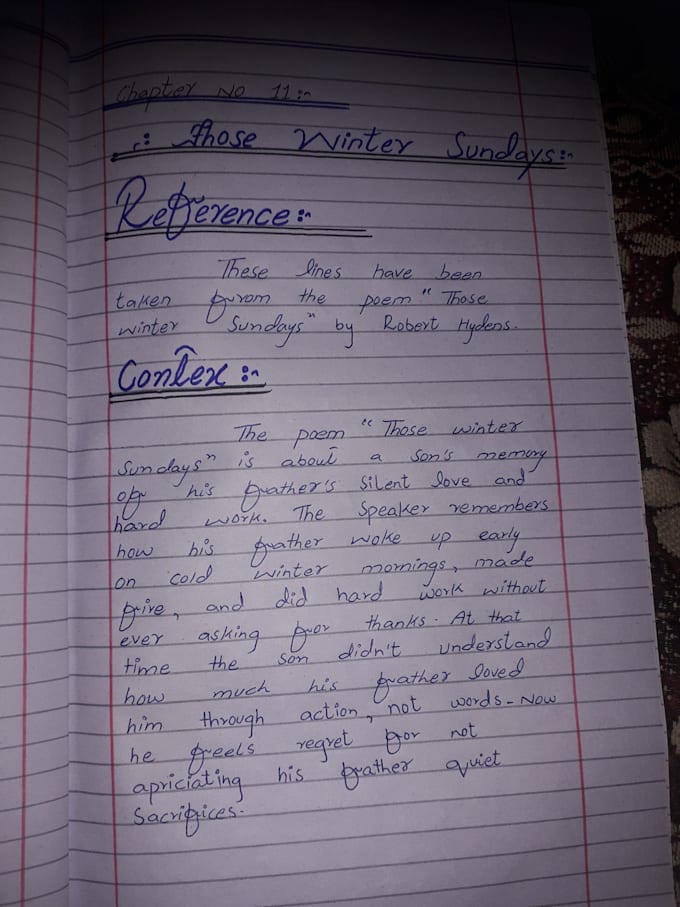 Chapter No 11:-
.: Those Winter Sundays:-
Reference:-
These lines have been
taken from the poem "Those
winter Sundays" by Robert Hydens.
Contex:-
The poem "Those winter
Sundays" is about a son's memory
of his father's silent love and
hard work. The speaker remembers
how his father woke up early
on cold winter mornings, made
fire, and did hard work without
ever asking for thanks. At that
time the son didn't understand
how much his father loved
him through action, not words-Now
he feels regret for not
apriciating his father quiet
Sacrifices.